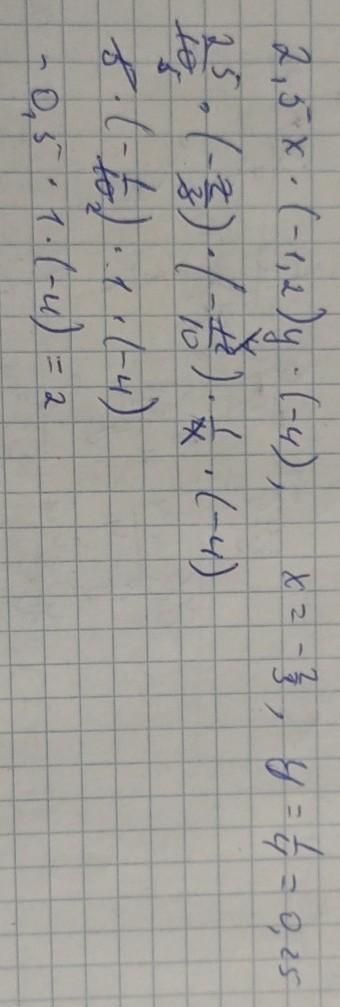 2,5x · (-1,2)y · (-4), x = -2/3, y = 1/4 = 0,25
25/10 5 · (-2/3) · (-12/10) · 1/4 · (-4)
5 · (-1/10 2) · 1 · (-4)
-0,5 · 1 · (-4) = 2